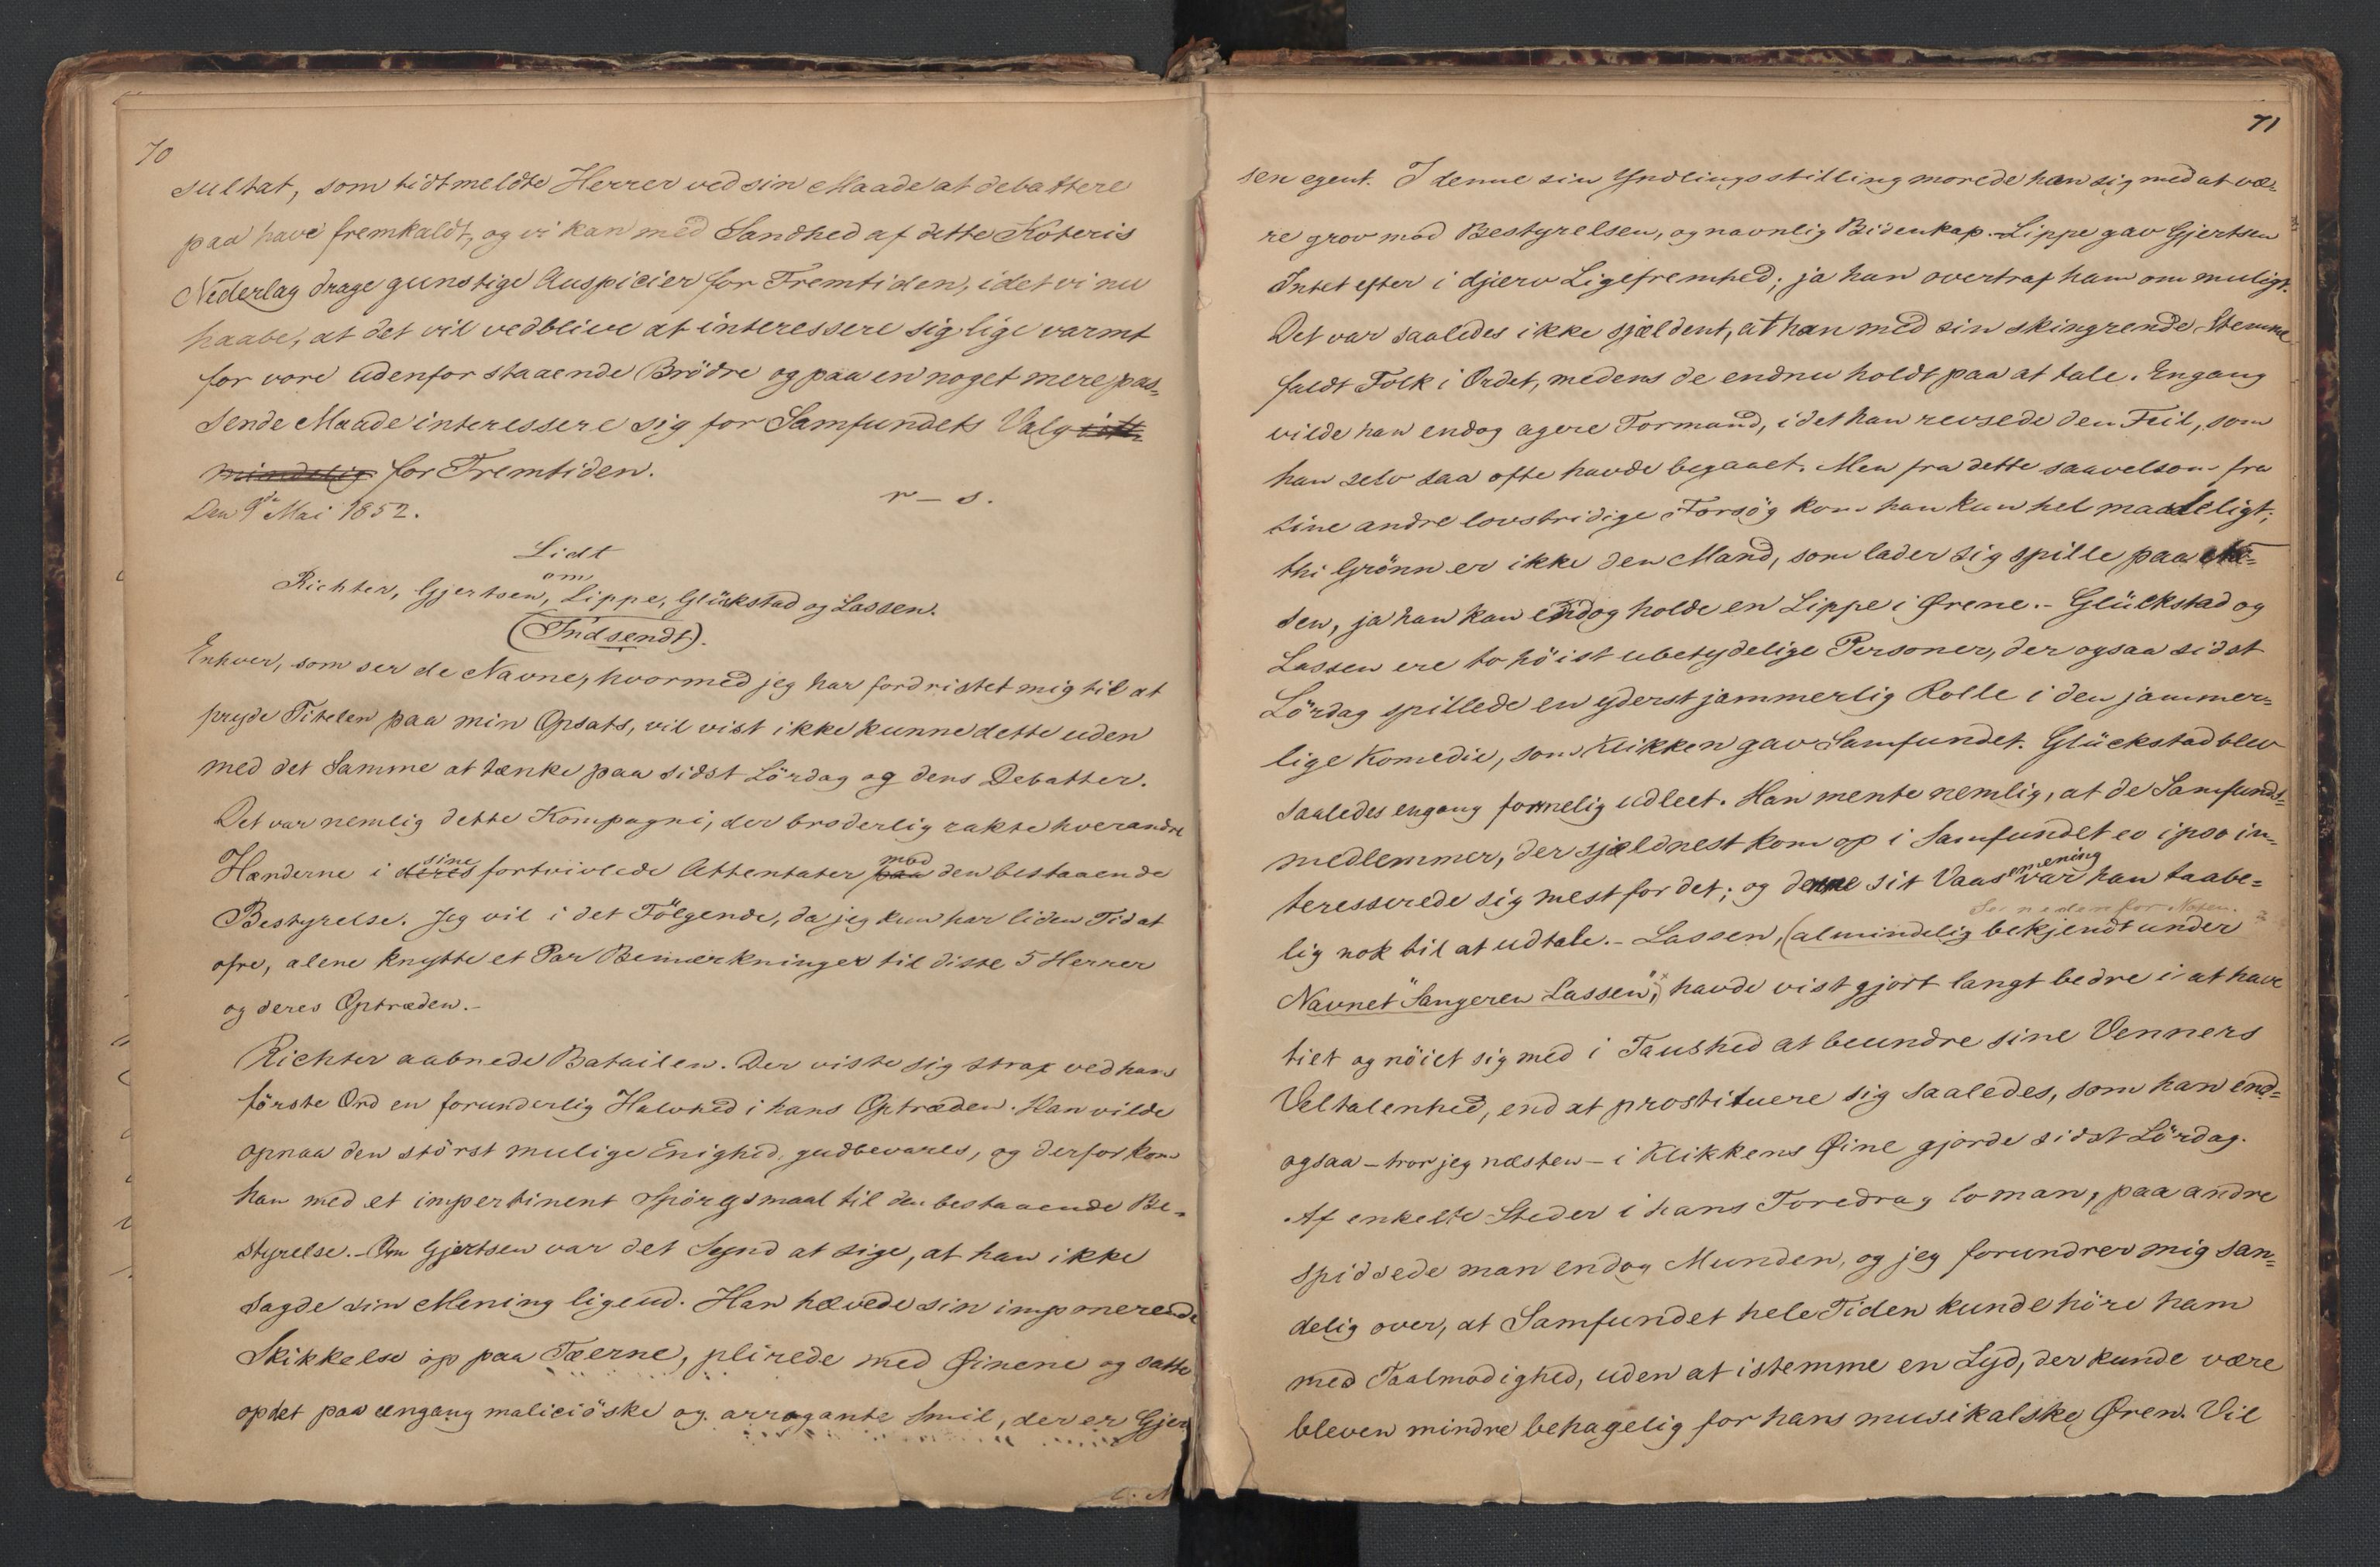 70
sultat, som tidtmeldte Herrer ved sin Maade at debattere
paa have fremkaldt, og vi kan med Sandhed af dette Koteris
Nederlag drage gunstige Auspicier for Fremtiden, idet vi nu
haabe, at det vil vedblive at interessere sig lige varmt
for vore udenfor staaende Brödre og paa en noget mere pas-
sende Maade interessere sig for Samfundets Valg
mindelig for Fremtiden.
Den 9de Mai 1852.
r – s.
Lidt
om
Richter, Gjertsen, Lippe, Glückstad og Lassen.
(Indsendt).
Enhver, som ser de Navne, hvormed jeg har fordristet mig til at
pryde Titelen paa min Opsats, vil vist ikke kunne dette uden
med det Samme at tænke paa sidst Lördag og dens Debatter.
Det var nemlig dette Kompagni, der broderlig rakte hverandre
Hænderne i deres sine fortvivlede Attentater paa mod den bestaaende
Bestyrelse. Jeg vil i det Fölgende, da jeg kun har liden Tid at
ofre, alene knytte et Par Bemærkninger til disse 5 Herrer
og deres Optræden.–
Richter aabnede Batailen. Der viste sig strax ved hans
förste Ord en forunderlig Halvhed i hans Optræden. Han vilde
opnaa den störst mulige Enighed, gudbevares, og derfor kom
han med et impertinent Spörgsmaal til den bestaaende Be-
styrelse.– Om Gjertsen var det Synd at sige, at han ikke
sagde sin Mening ligeud. Han hævede sin imponerende
Skikkelse op paa Tæerne, plirede med Øinene og satte
op det paa eengang maliciöske og arrogante Smil, der er Gjert
71
sen egent. I denne sin Yndlingsstilling morede han sig med at væ-
re grov mod Bestyrelsen, og navnlig Bidenkap.– Lippe gav Gjertsen
Intet efter i djærv Ligefremhed; ja han overtraf ham om muligt.
Det var saaledes ikke sjældent, at han med sin skingrende Stemme
faldt Folk i Ordet, medens de endnu holdt paa at tale. Engang
vilde han endog agere Formand, idet han revsede den Feil, som
han selv saa ofte havde begaaet. Men fra dette saavelsom fra
sine andre lovstridige Forsög kom han kun hel maadeligt;
thi Grönn er ikke den Mand, som lader sig spille paa Næ-
sen, ja han kan endog holde en Lippe i Ørene.– Glückstad og
Lassen ere to höist ubetydelige Personer, der ogsaa sidst
Lördag spillede en yderst jammerlig Rolle i den jammer-
lige Komedie, som Klikken gav Samfundet. Glückstad blev
saaledes engang formelig udleet. Han mente nemlig, at de Samfunds-
medlemmer, der sjældnest kom op i Samfundet eo ipso in-
teresserede sig mest for det; og denne sit Vaas mening var han taabe-
Se nedenfor Noten.
lig nok til at udtale.– Lassen, (almindelig bekjendt under
Navnet "Sangeren Lassen",) havde vist gjort langt bedre i at have
tiet og nöiet sig med i Taushed at beundre sine Venners
Veltalenhed, end at prostituere sig saaledes, som han end-
ogsaa – tror jeg næsten – i Klikkens Øine gjorde sidst Lördag.
Af enkelte Steder i hans Foredrag lo man, paa andre
spidsede man endog Munden, og jeg forundrer mig san-
delig over, at Samfundet hele Tiden kunde höre ham
med Taalmodighed, uden at istemme en Lyd, der kunde være
bleven mindre behagelig for hans musikalske Øren. Vil